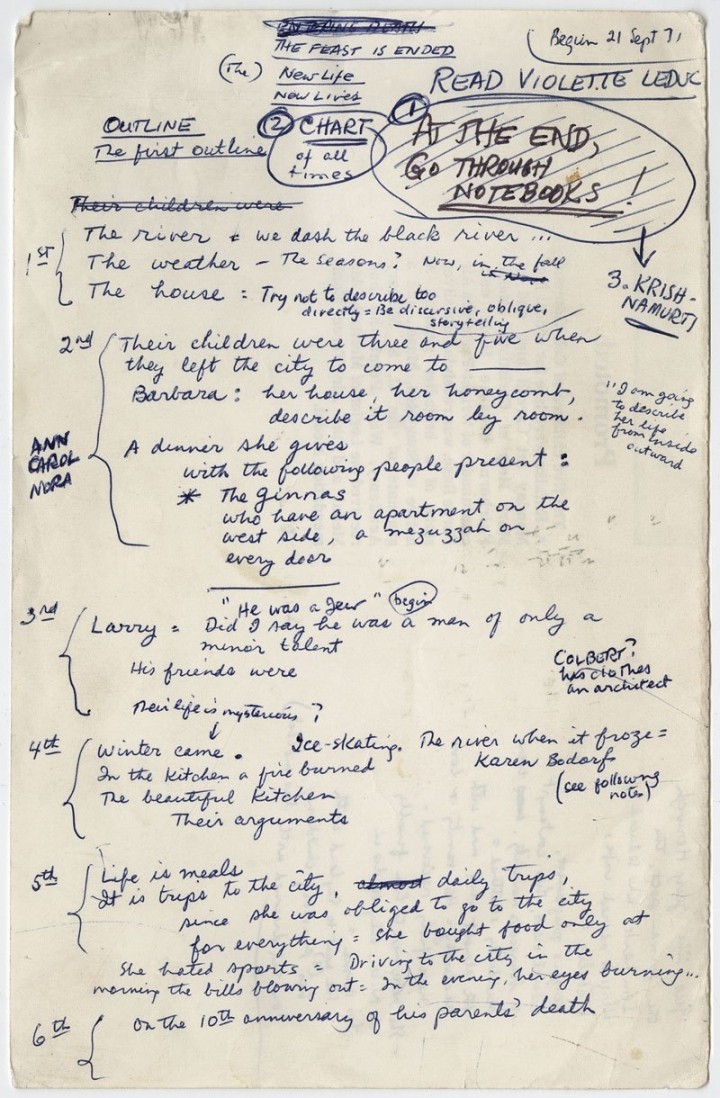 THE FEAST IS ENDED
(The) New Life
New Lives
Begin 21 Sept 71
READ VIOLETTE LEDUC
OUTLINE
The first outline
② CHART
of all
times
①
AT THE END,
GO THROUGH
NOTEBOOKS!
3. KRISH-
NAMURTI
Their children were
1st
The river + we dash the black river ...
The weather – The seasons? Now, in the fall
The house : Try not to describe too
directly = Be discursive, oblique,
storytelling
2nd
Their children were three and five when
they left the city to come to ______
Barbara : her house, her honeycomb,
describe it room by room.
"I am going
to describe
her life
from inside
outward
ANN
CAROL
NORA
A dinner she gives
with the following people present :
* The Ginnas
who have an apartment on the
west side, a mezuzzah on
every door
3rd
"He was a Jew" begin
Larry = Did I say he was a man of only a
minor talent
His friends were
COLBERT?
has clothes
an architect
Their life is mysterious?
4th
Winter came. Ice-skating. The river when it froze =
Karen Bodorfs
In the kitchen a fire burned
(see following
notes)
The beautiful kitchen
Their arguments
5th
Life is meals
It is trips to the city, almost daily trips,
since she was obliged to go to the city
for everything = she bought food only at
She hated sports = Driving to the city in the
morning the bills blowing out = In the evening, her eyes burning...
6th
On the 10th anniversary of his parents' death